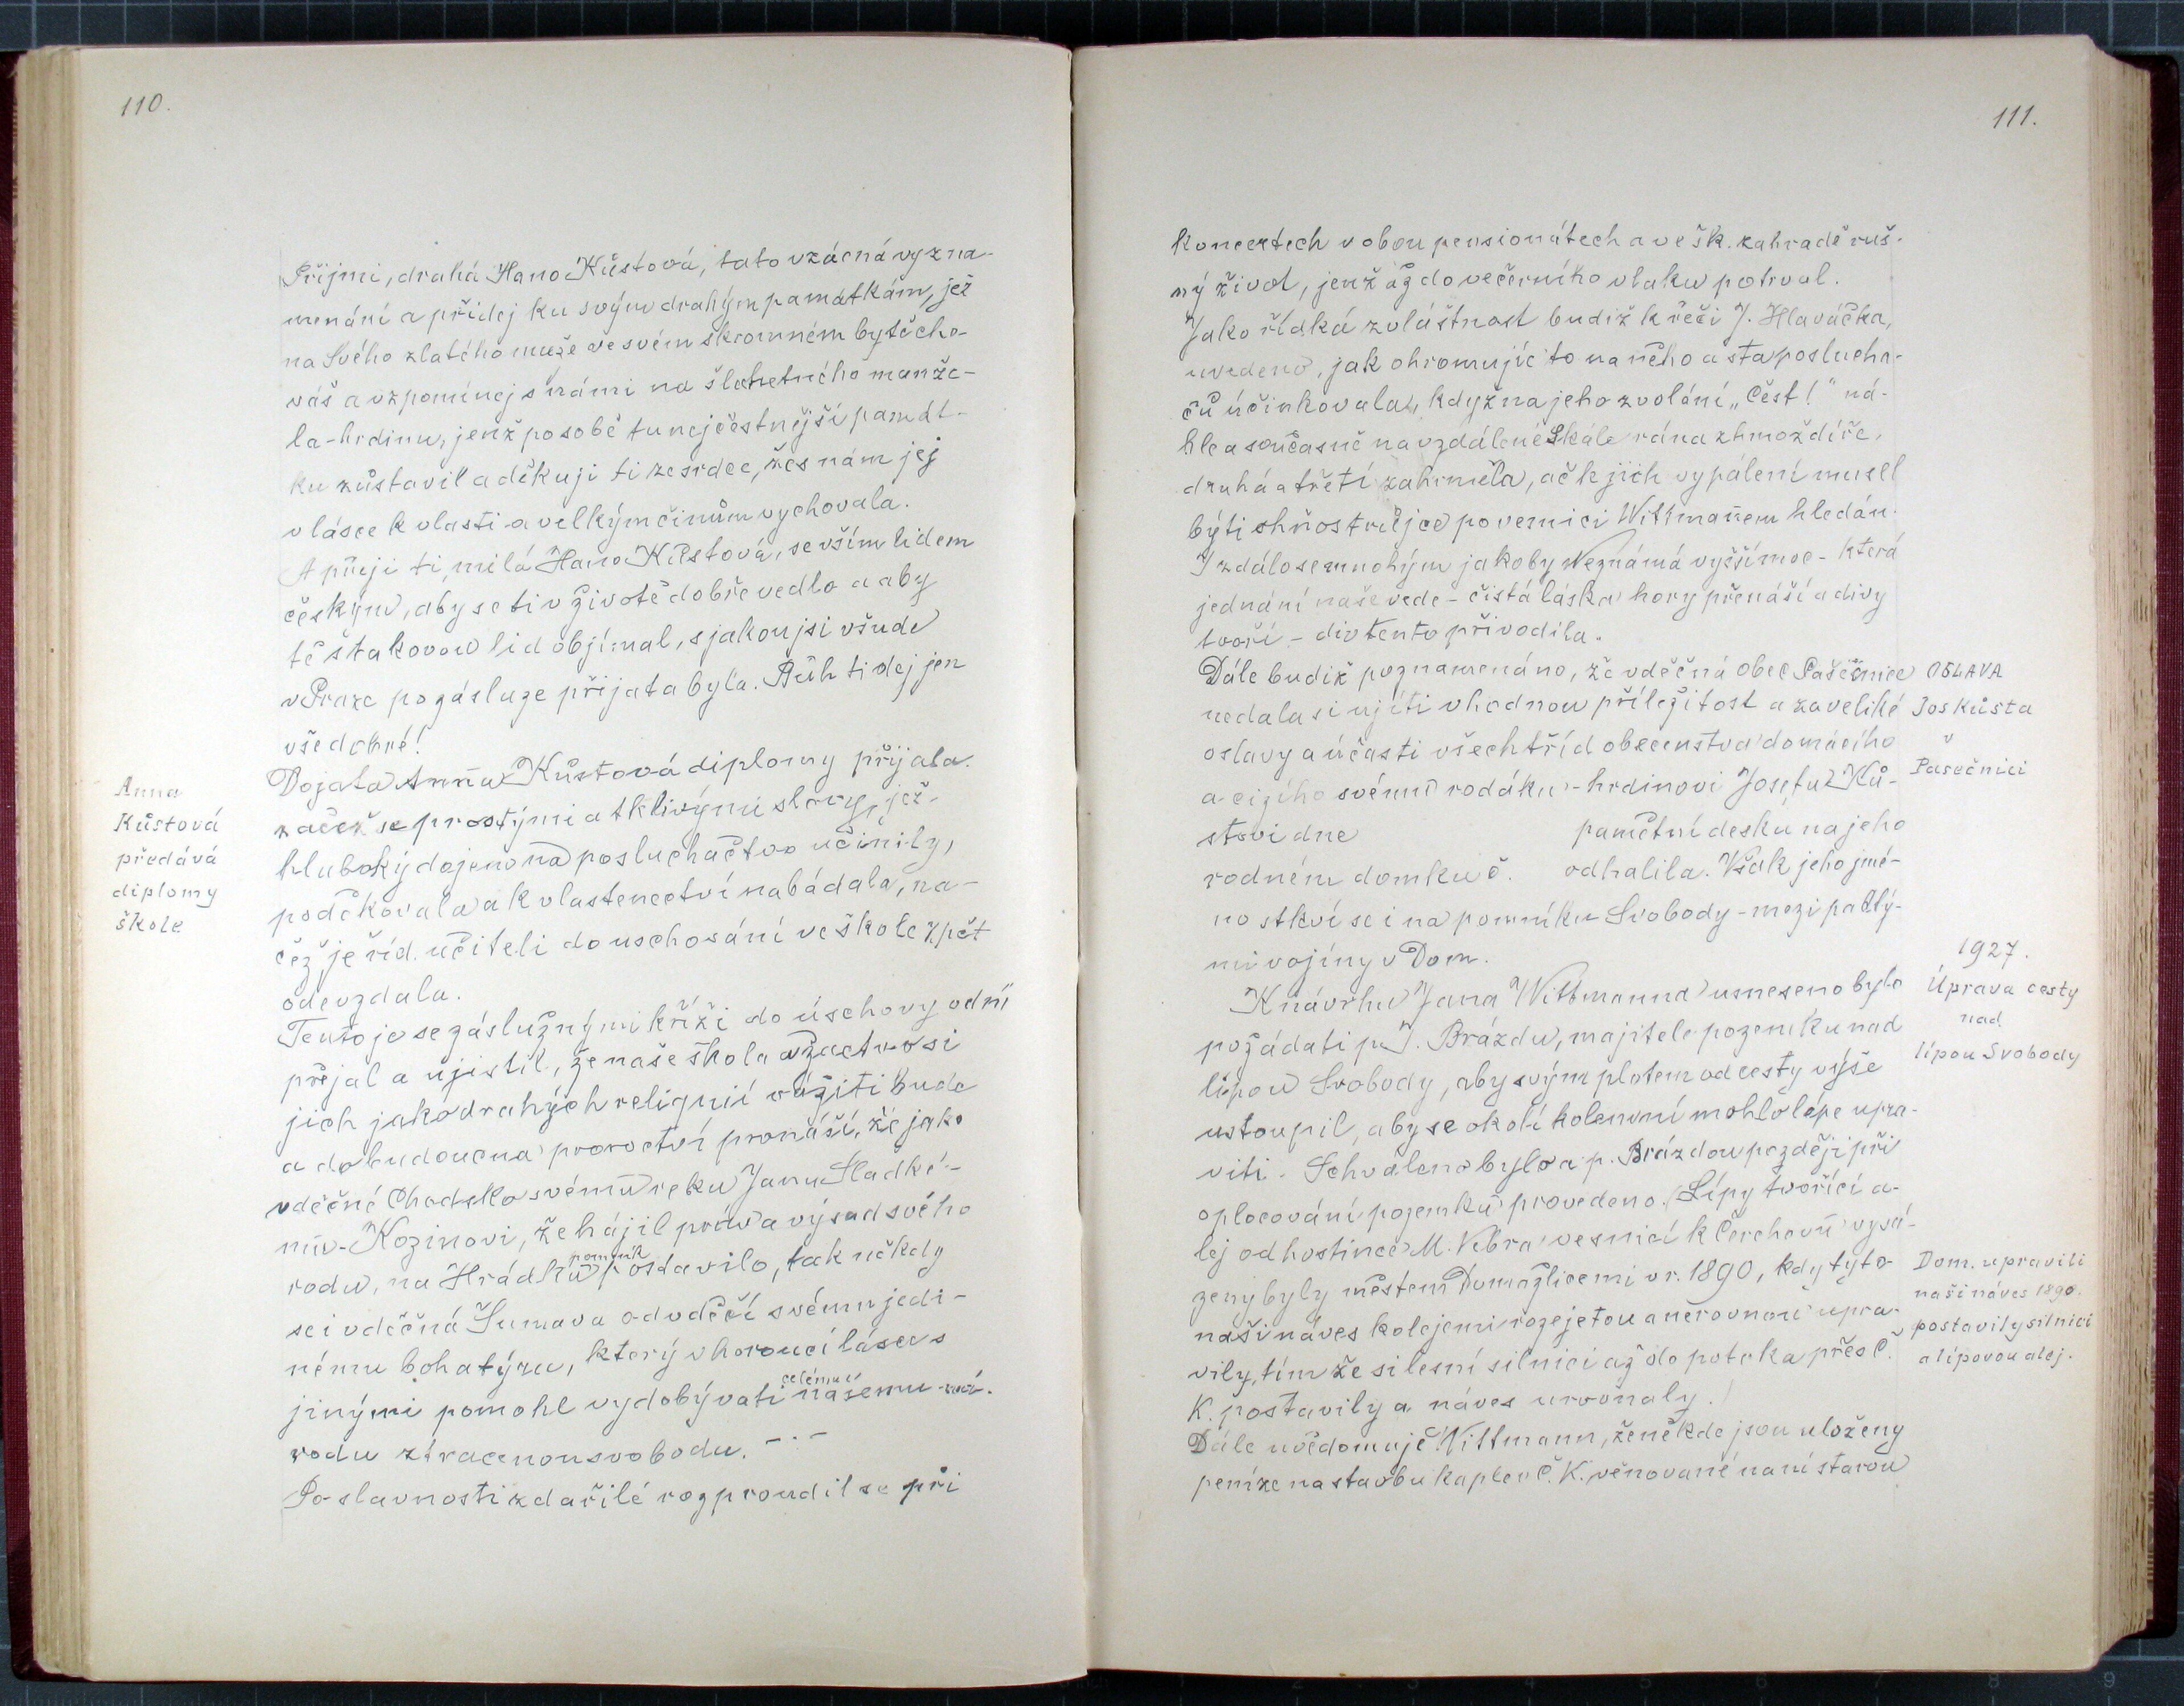 110.
Přijmi, drahá Hano Kůstová, tato vzácná vyzna-
menání a přidej ku svým drahým památkám, jež
na svého zlatého muže ve svém skromném bytě cho-
váš a vzpomínej s námi na šlechetného manže-
la-hrdinu, jenž po sobě tu nejčestnější památ-
ku zůstavil a děkuji ti ze srdce, žes nám jej
v lásce k vlasti a velkým činům vychovala.
A přeji ti, milá Hano Kůstová, se vším lidem
českým, aby se ti v životě dobře vedlo a aby
tě s takovou lid objímal, s jakou jsi všude
v Praze po zásluze přijata byla. Bůh ti dej jen
vše dobré!
Dojata Anna Kůstová diplomy přijala.
Anna
Kůstová
předává
diplomy
škole
načež se prostými a tklivými slovy, jež
hluboký dojem na posluchačtvo učinily,
poděkovala a k vlastenectví nabádala, na-
čež je říd. učiteli do uschování ve škole zpět
odevzdala.
Tento je se záslužnými kříži do úschovy od ní
přejal a ujistil, že naše škola a žactvo si
jich jako drahých reliquií vážiti bude
a do budoucna proroctví pronáší, že jako
vděčné Chodsko svému reku Janu Sladké-
mu-Kozinovi, že hájil práv a výsad svého
rodu, na Hrádku pomník postavilo, tak někdy
se i vděčná Šumava odvděčí svému jedi-
nému bohatýru, který v horoucí lásce s
jinými pomohl vydobývati celému našemu ná-
rodu ztracenou svobodu. - . -
Po slavnosti zdařilé rozproudil se při
111.
koncertech v obou pensionátech a ve šk. zahradě ruš-
ný život, jenž až do večerního vlaku potrval.
Jako řídká zvláštnost budiž k řeči J. Hlaváčka,
uvedeno, jak ohromujíc to na něho a sta poslucha-
čů účinkovala, když na jeho zvolání „Čest!" ná-
hle a současně na vzdálené Skále rána z hmoždíře,
druhá a třetí zahřměla, ač k jich vypálení musel
býti ohňostrůjce po vernici Wittmanem hledán.
I zdálo se mnohým jakoby neznámá vyšší moc - která
jednání naše vede - čistá láska hory přenáší a divy
tvoří - div tento přivodila.
Dále budiž poznamenáno, že vděčná obec Pasečnice
OSLAVA
Jos Kůsta
v
Pasečnici
nedala si ujíti vhodnou příležitost a za veliké
oslavy a účasti všech tříd obecenstva domácího
a cizího svému rodáku-hrdinovi Josefu Ků-
stovi dne pamětní desku na jeho
rodném domku č. odhalila. Však jeho jmé-
no stkví se i na pomníku Svobody - mezi padlý-
mi vojíny v Dom.
1927.
Úprava cesty
nad
lípou Svobody
K návrhu Jana Wittmanna usneseno bylo
požádati p. J. Brázdu, majitele pozemku nad
lípou Svobody, aby svým plotem od cesty výše
ustoupil, aby se okolí kolem ní mohlo lépe upra-
viti. Schváleno bylo a p. Brázdou později při
oplocování pozemku provedeno. (Lípy tvořící a-
lej od hostince M. Vebra vesnicí k Čerchovu vysá-
zeny byly městem Domažlicemi v r. 1890, kdy tyto
Dom. upravili
naši náves 1890.
postavily silnici
a lípovou alej.
naši náves kolejemi rozejetou a nerovnou upra-
vily, tím že si lesní silnici až do potoka přes Č.
K. postavily a náves urovnaly.)
Dále uvědomuje Wittmann, že někde jsou uloženy
peníze na stavbu kaple v Č. K. věnované naní starou